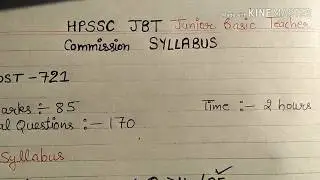 Made with
KINEMASTER
HPSSC JBT Junior Basic Teacher
Commission SYLLABUS
OST -721
arks :- 85
Time :- 2 hours
al Questions :- 170
Syllabus